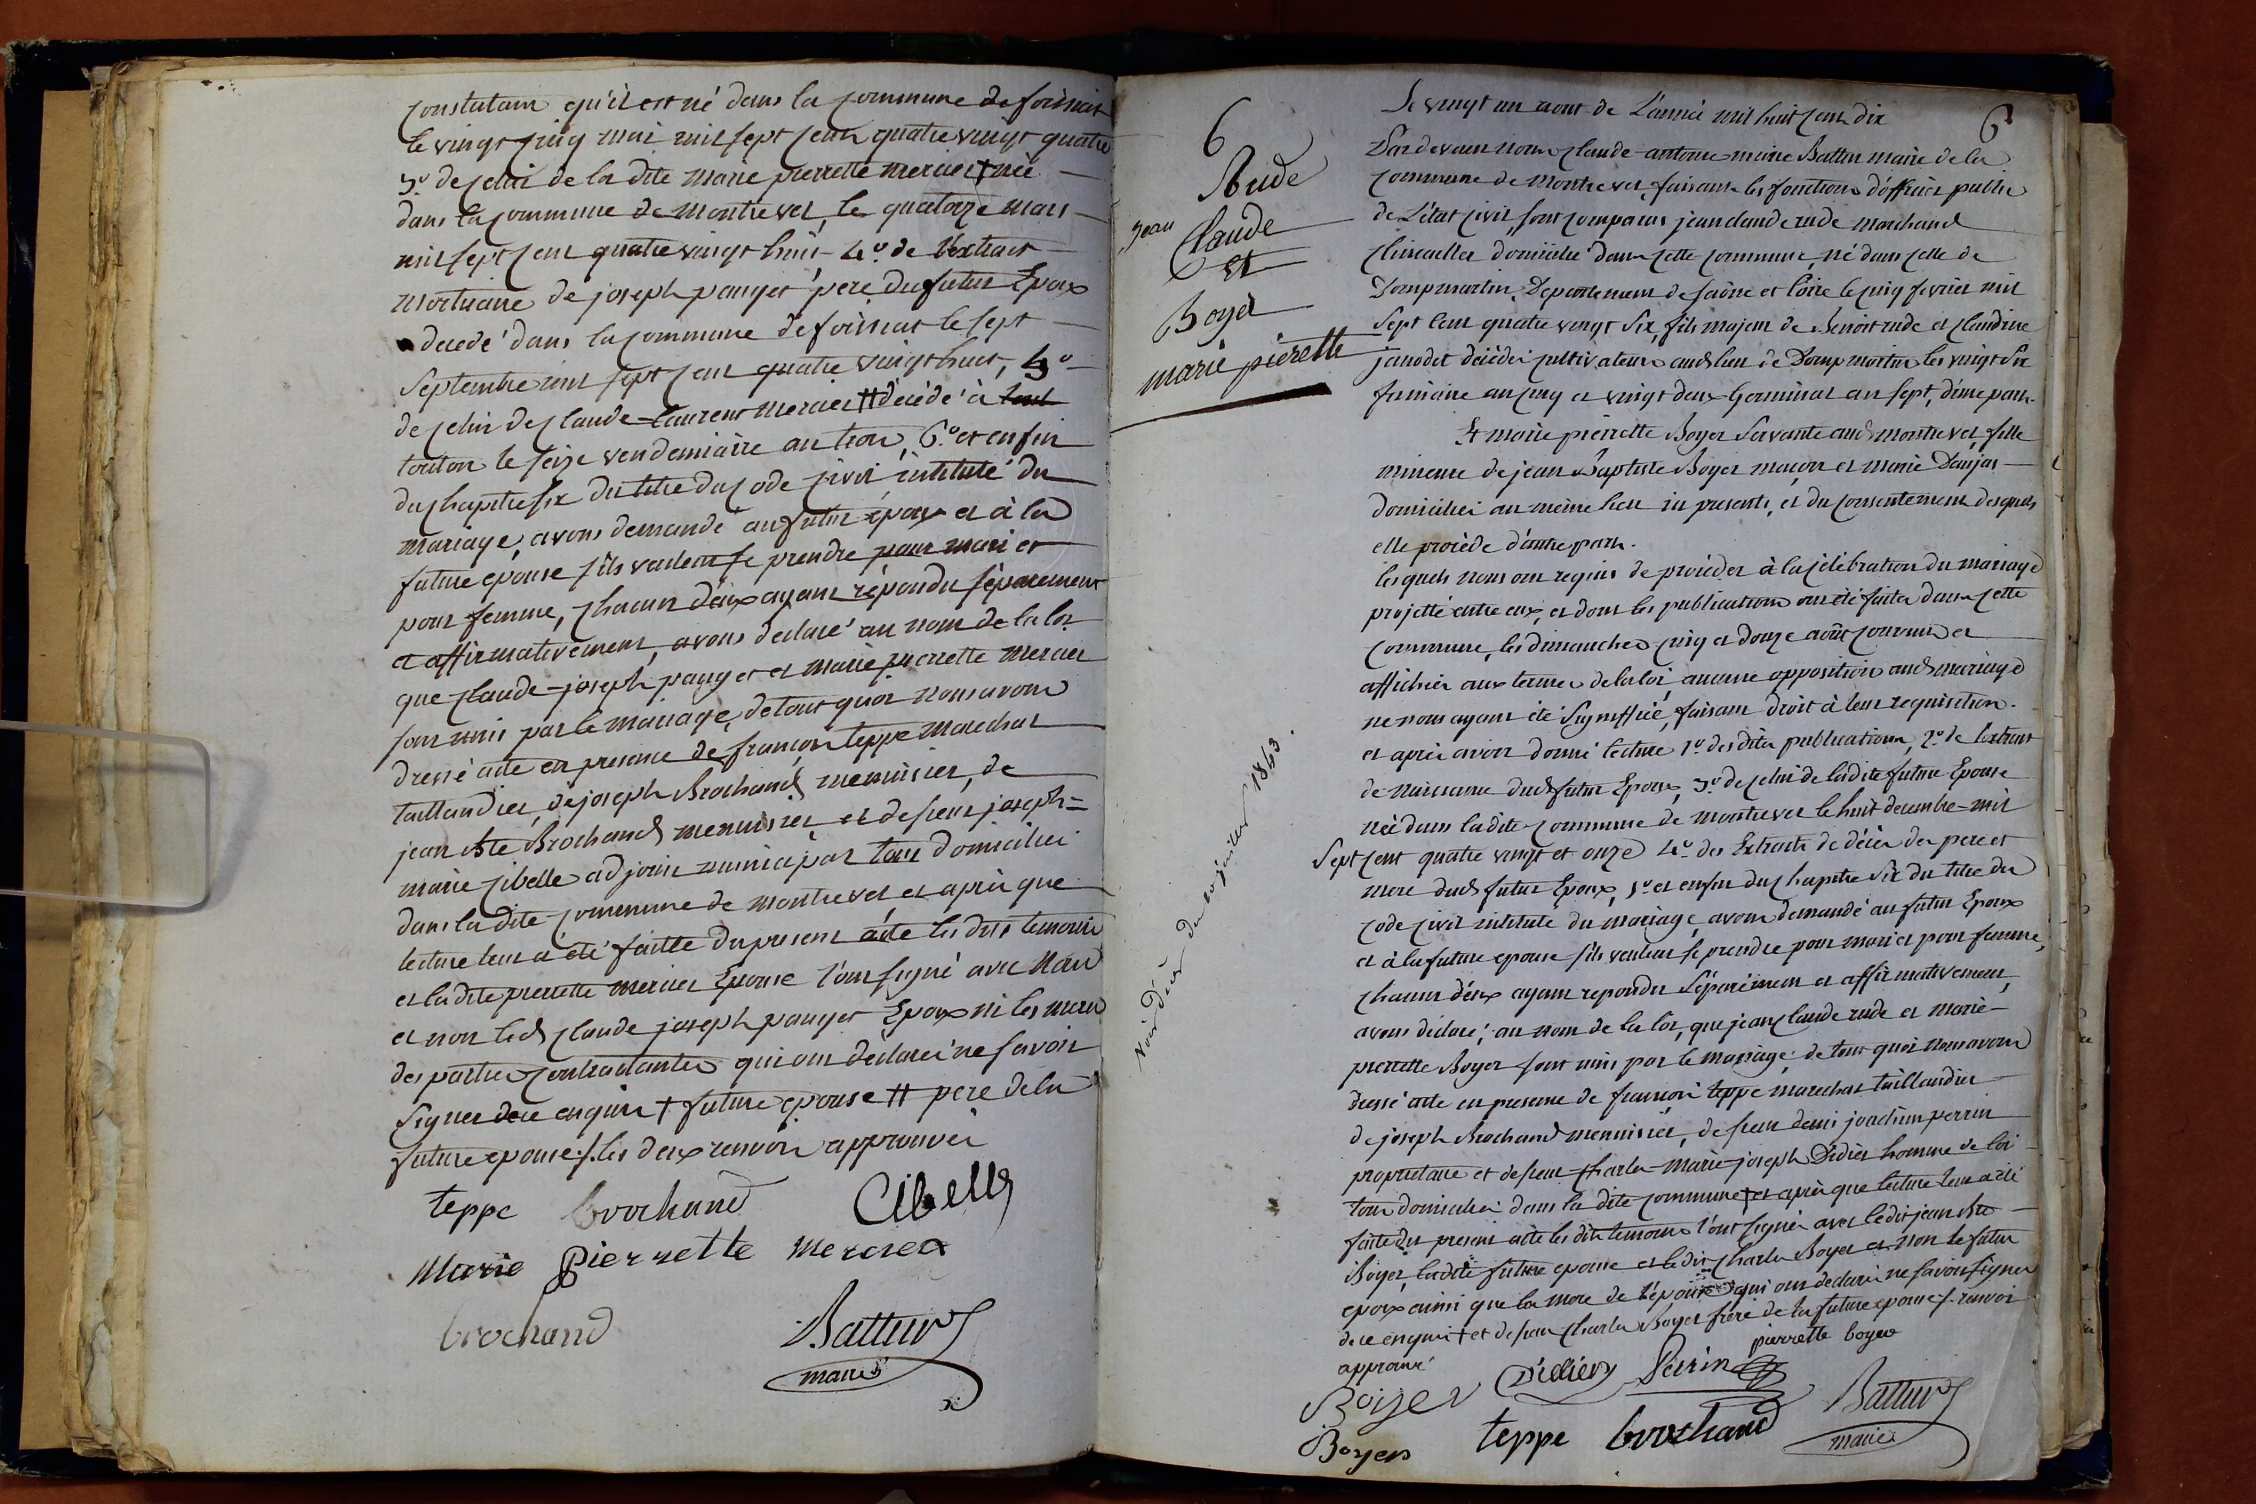 constatant qu'il est né dans la commune de foissiat
le vingt cinq mai mil sept cent quatre vingt quatre
3.º de celui de la dite marie pierrette mercier † née
dans la commune de montrevel, le quatorze mars
mil sept cent quatre vingt huit 4.º de l'extrait
mortuaire de joseph pauget pere du futur Epoux
decedé dans la commune de foissiat le sept
septembre mil sept cent quatre vingt huit, 5º
de celui de claude-laurent mercier †† décédé à
toulon le seize vendemiaire an trois, 6.º et enfin
du chapitre six du titre du code civil, intitulé du
mariage, avons demandé au futur epoux et à la
future epouse s'ils veulent se prendre pour mari et
pour femme, chacun d'eux ayant répondu séparement
et affirmativement, avons declaré au nom de la loi
que claude-joseph pauget et marie pierrette mercier
sont unis par le mariage, de tout quoi nous avons
dressé acte en presence de françois teppe marechal
taillandier, de joseph Brochand menuisier, de
jean Bte Brochand menuisier et de sieur joseph=
marie cibelle adjoint municipal tous domiciliés
dans la dite commune de montrevel et après que
lecture leur a été faitte du present acte les dits temoins
et la dite pierrette mercier Epouse l'ont signé avec Nous
et non led. claude joseph pauget Epoux ni les meres
des parties contractantes qui ont declaré ne savoir
signer de ce enquis † future epouse †† pere de la
future epouse ./. les deux renvois approuvés
teppe brochand Cibelle
Marie Pierrette Mercier
brochand Battur
maire
6
Rude
Jean
Claude
et
Boyer
marie pierette
Voir décès du 10 juillet 1863.
6
Le vingt un aout de L'année mil huit cent dix
Par devant nous claude-antoine marie Battur maire de la
commune de montrevel, faisant les fonctions d'officier public
de L'état civil, sont comparus jean claude rude marchand
clincailler domicilié dans cette commune, né dans celle de
Dompmartin, Departement de saône et loire le cinq fevrier mil
sept cent quatre vingt six, fils majeur de Benoit rude et claudine
janodet décédés cultivateurs aud. lieu de Dompmartin les vingt six
frimaire an cinq et vingt deux Germinal an sept, d'une part.
Et marie pierrette Boyer servante aud. montrevel, fille
mineure de jean Baptiste Boyer maçon et marie Danjas
domiciliés au même lieu ici presents, et du consentement desquels
elle procède d'autre part.
lesquels nous ont requis de procéder à la célébration du mariage
projetté entre eux, et dont les publications ont été faites dans cette
commune, les dimanches cinq et douze août courant et
affichées aux termes de la loi, aucune opposition aud. mariage
ne nous ayant été signiffiée, faisant droit à leur requisition.
et après avoir donné lecture 1º des dites publications, 2º de l'extrait
de naissance dud. futur Epoux, 3º de celui de la dite future Epouse
née dans la dite commune de montrevel le huit decembre mil
sept cent quatre vingt et onze 4º des Extraits de décès des pere et
mere dud. futur Epoux, 5º et enfin du chapitre six du titre du
code civil intitulé du mariage, avons demandé au futur Epoux
et à la future epouse s'ils veulent se prendre pour mari et pour femme,
chacun d'eux ayant repondu séparément et affirmativement,
avons déclaré, au nom de la loi, que jean claude rude et marie-
pierrette Boyer sont unis par le mariage; de tout quoi nous avons
dressé acte en presence de françois teppe marechal taillandier
de joseph Brochand menuisier, de sieur denis joachim perrin
proprietaire et de sieur charles-marie-joseph Didier homme de loi
tous domiciliés dans la dite commune † et après que lecture leur a été
faite du present acte les dits temoins l'ont signé avec ledit jean Bte
Boyer, ladite future epouse et ledit charles Boyer et non le futur
epoux ainsi que la mere de l'épouse qui ont declaré ne savoir signer
de ce enquis † et de sieur charles Boyer frère de la future epouse ./. renvoi
approuvé
pierrette boyer
Boyer Didier Perrin
Boyer teppe brochand Battur
maire